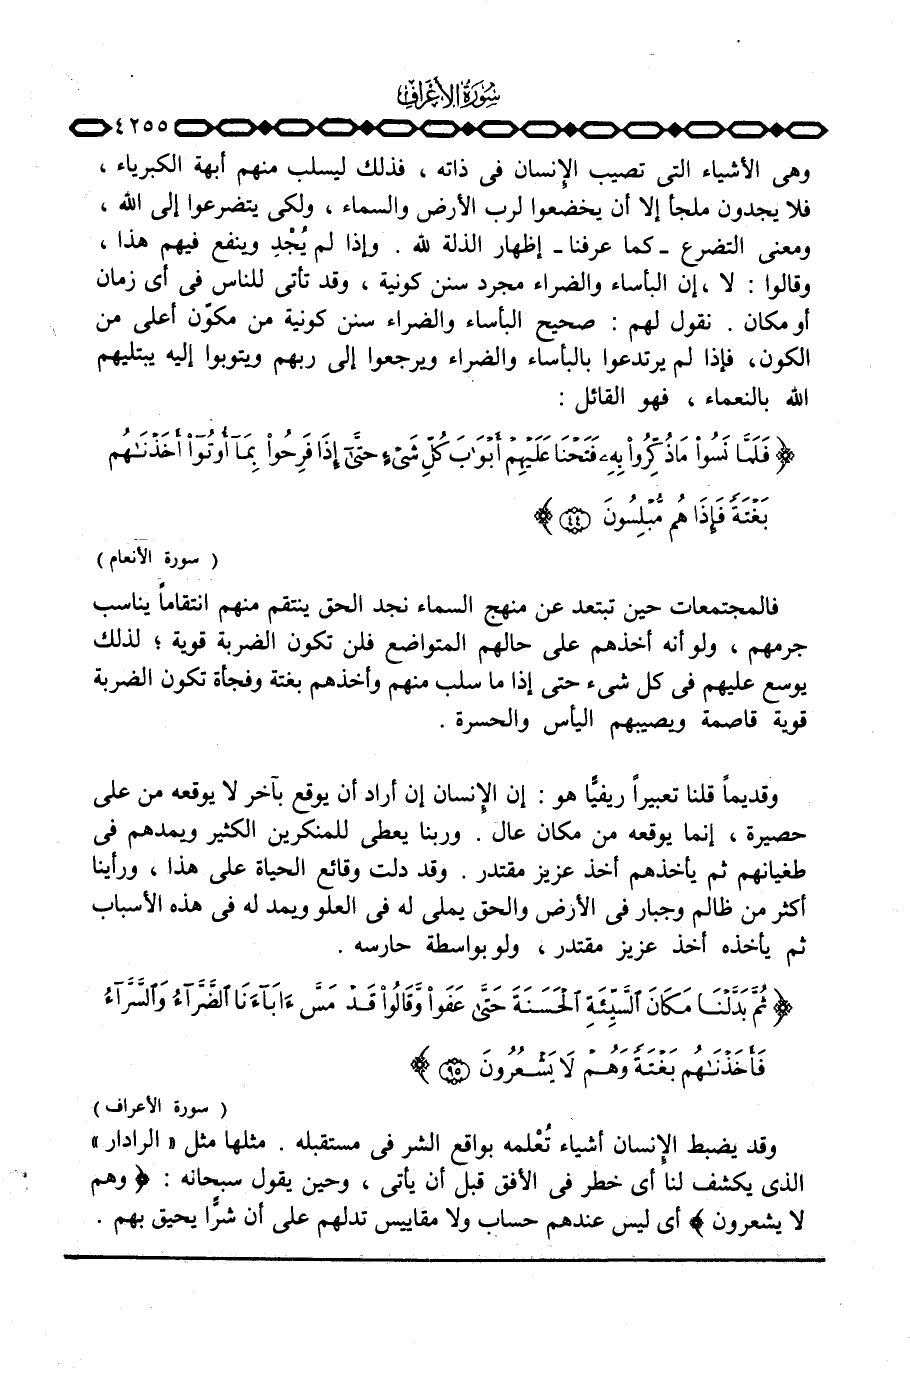 سورة الأعراف
٤٢٥٥
وهى الأشياء التى تصيب الإنسان فى ذاته ، فذلك ليسلب منهم أبهة الكبرياء ،
فلا يجدون ملجأ إلا أن يخضعوا لرب الأرض والسماء ، ولكى يتضرعوا إلى الله ،
ومعنى التضرع ـ كما عرفنا ـ إظهار الذلة لله . وإذا لم يُجْدِ وينفع فيهم هذا ،
وقالوا : لا ، إن البأساء والضراء مجرد سنن كونية ، وقد تأتى للناس فى أى زمان
أو مكان . نقول لهم : صحيح البأساء والضراء سنن كونية من مكوّن أعلى من
الكون، فإذا لم يرتدعوا بالبأساء والضراء ويرجعوا إلى ربهم ويتوبوا إليه يبتليهم
الله بالنعماء ، فهو القائل :
﴿ فَلَمَّا نَسُوا۟ مَا ذُكِّرُوا۟ بِهِۦ فَتَحْنَا عَلَيْهِمْ أَبْوَٰبَ كُلِّ شَىْءٍ حَتَّىٰٓ إِذَا فَرِحُوا۟ بِمَآ أُوتُوٓا۟ أَخَذْنَـٰهُم
بَغْتَةً فَإِذَا هُم مُّبْلِسُونَ ٤٤ ﴾
( سورة الأنعام )
فالمجتمعات حين تبتعد عن منهج السماء نجد الحق ينتقم منهم انتقاماً يناسب
جرمهم ، ولو أنه أخذهم على حالهم المتواضع فلن تكون الضربة قوية ؛ لذلك
يوسع عليهم فى كل شىء حتى إذا ما سلب منهم وأخذهم بغتة وفجأة تكون الضربة
قوية قاصمة ويصيبهم اليأس والحسرة .
وقديماً قلنا تعبيراً ريفيًّا هو : إن الإنسان إن أراد أن يوقع بآخر لا يوقعه من على
حصيرة ، إنما يوقعه من مكان عال . وربنا يعطى للمنكرين الكثير ويمدهم فى
طغيانهم ثم يأخذهم أخذ عزيز مقتدر . وقد دلت وقائع الحياة على هذا ، ورأينا
أكثر من ظالم وجبار فى الأرض والحق يملى له فى العلو ويمد له فى هذه الأسباب
ثم يأخذه أخذ عزيز مقتدر ، ولو بواسطة حارسه .
﴿ ثُمَّ بَدَّلْنَا مَكَانَ ٱلسَّيِّئَةِ ٱلْحَسَنَةَ حَتَّىٰ عَفَوا۟ وَّقَالُوا۟ قَدْ مَسَّ ءَابَآءَنَا ٱلضَّرَّآءُ وَٱلسَّرَّآءُ
فَأَخَذْنَـٰهُم بَغْتَةً وَهُمْ لَا يَشْعُرُونَ ٩٥ ﴾
( سورة الأعراف )
وقد يضبط الإنسان أشياء تُعْلمه بواقع الشر فى مستقبله . مثلها مثل « الرادار »
الذى يكشف لنا أى خطر فى الأفق قبل أن يأتى ، وحين يقول سبحانه : ﴿ وهم
لا يشعرون ﴾ أى ليس عندهم حساب ولا مقاييس تدلهم على أن شرًّا يحيق بهم .